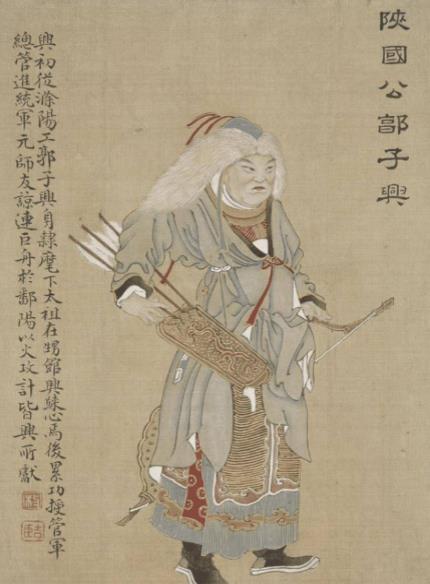 陝國公郭子興
興初從滁陽王郭子興身隸麾下太祖在甥館興歸心焉後累功授管軍
總管進統軍元帥友諒連巨舟於鄱陽以火攻計皆興所獻